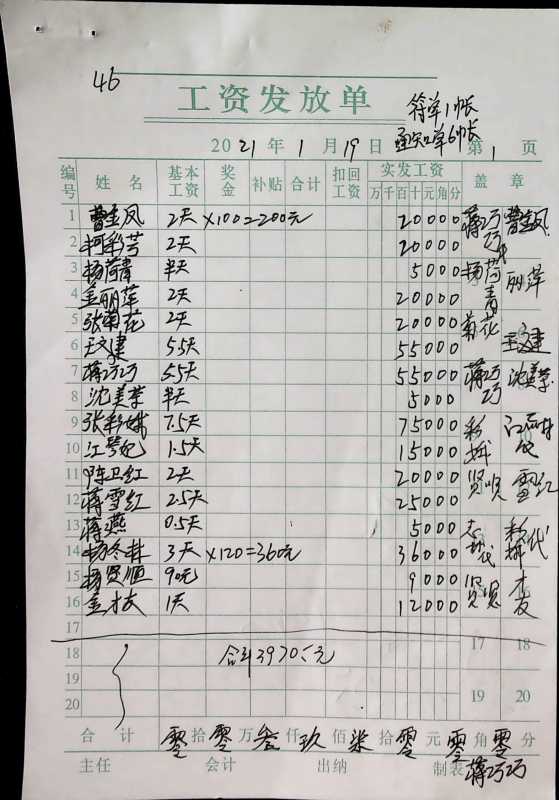 46
工资发放单
符单1帐
通知单6帐
2021年1月19日 第1页
编号 姓名 基本工资 奖金 补贴 合计 扣回工资 实发工资 盖章
万千百十元角分
1 曹金凤 2天 ×100=200元 20000 蒋巧巧 曹金凤
2 柯彩芳 2天 20000
3 杨荷青 半天 5000 杨荷青 丽萍
4 金丽萍 2天 20000
5 张菊花 2天 20000 菊花
6 王文建 5.5天 55000 王文建
7 蒋巧巧 5.5天 55000 蒋巧巧 沈美芬
8 沈美芬 半天 5000
9 张彩娥 7.5天 75000 彩娥
10 江琴妃 1.5天 15000
11 陈卫红 2天 20000 贤顺 雪红
12 蒋雪红 2.5天 25000
13 蒋燕 0.5天 5000
14 杨冬林 3天 ×120=360元 36000 代
15 杨贤顺 90元 9000 贤顺 才友
16 金才友 1天 12000
17
18 合计3970.00元 17 18
19
20 19 20
合计 零拾零万叁仟玖佰柒拾零元零角零分
主任 会计 出纳 制表 蒋巧巧